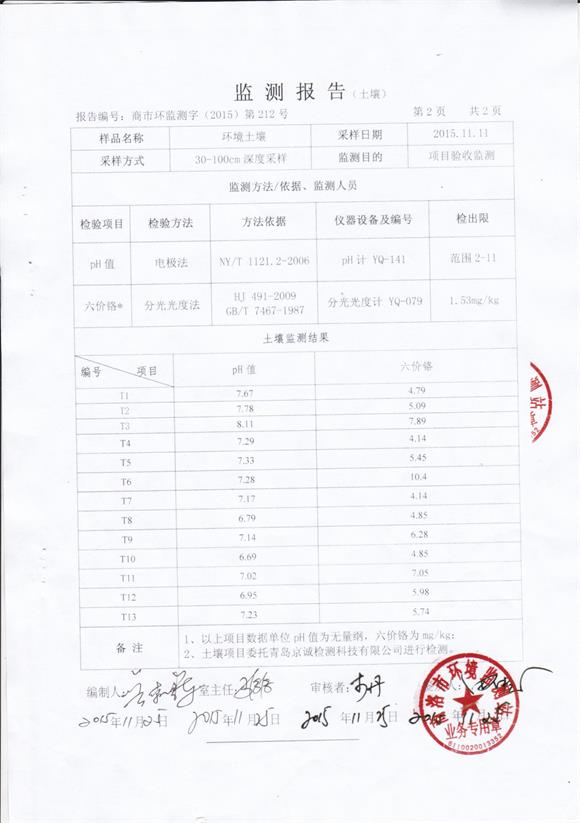 监 测 报 告（土壤）
报告编号：商市环监测字（2015）第 212 号 第 2 页 共 2 页
样品名称 环境土壤 采样日期 2015.11.11
采样方式 30-100cm 深度采样 监测目的 项目验收监测
监测方法/依据、监测人员
检验项目 检验方法 方法依据 仪器设备及编号 检出限
pH 值 电极法 NY/T 1121.2-2006 pH 计 YQ-141 范围 2-11
六价铬* 分光光度法 HJ 491-2009 GB/T 7467-1987 分光光度计 YQ-079 1.53mg/kg
土壤监测结果
编号 项目 pH 值 六价铬
T1 7.67 4.79
T2 7.78 5.09
T3 8.11 7.89
T4 7.29 4.14
T5 7.33 5.45
T6 7.28 10.4
T7 7.17 4.14
T8 6.79 4.85
T9 7.14 6.28
T10 6.69 4.85
T11 7.02 7.05
T12 6.95 5.98
T13 7.23 5.74
备 注 1、以上项目数据单位 pH 值为无量纲，六价铬为 mg/kg；
2、土壤项目委托青岛京诚检测科技有限公司进行检测。
编制人 室主任 审核者：
2015年11月25日 2015年11月25日 2015年11月25日 2015年11月25日
商洛市环境监测站
业务专用章
6110020013352
测站